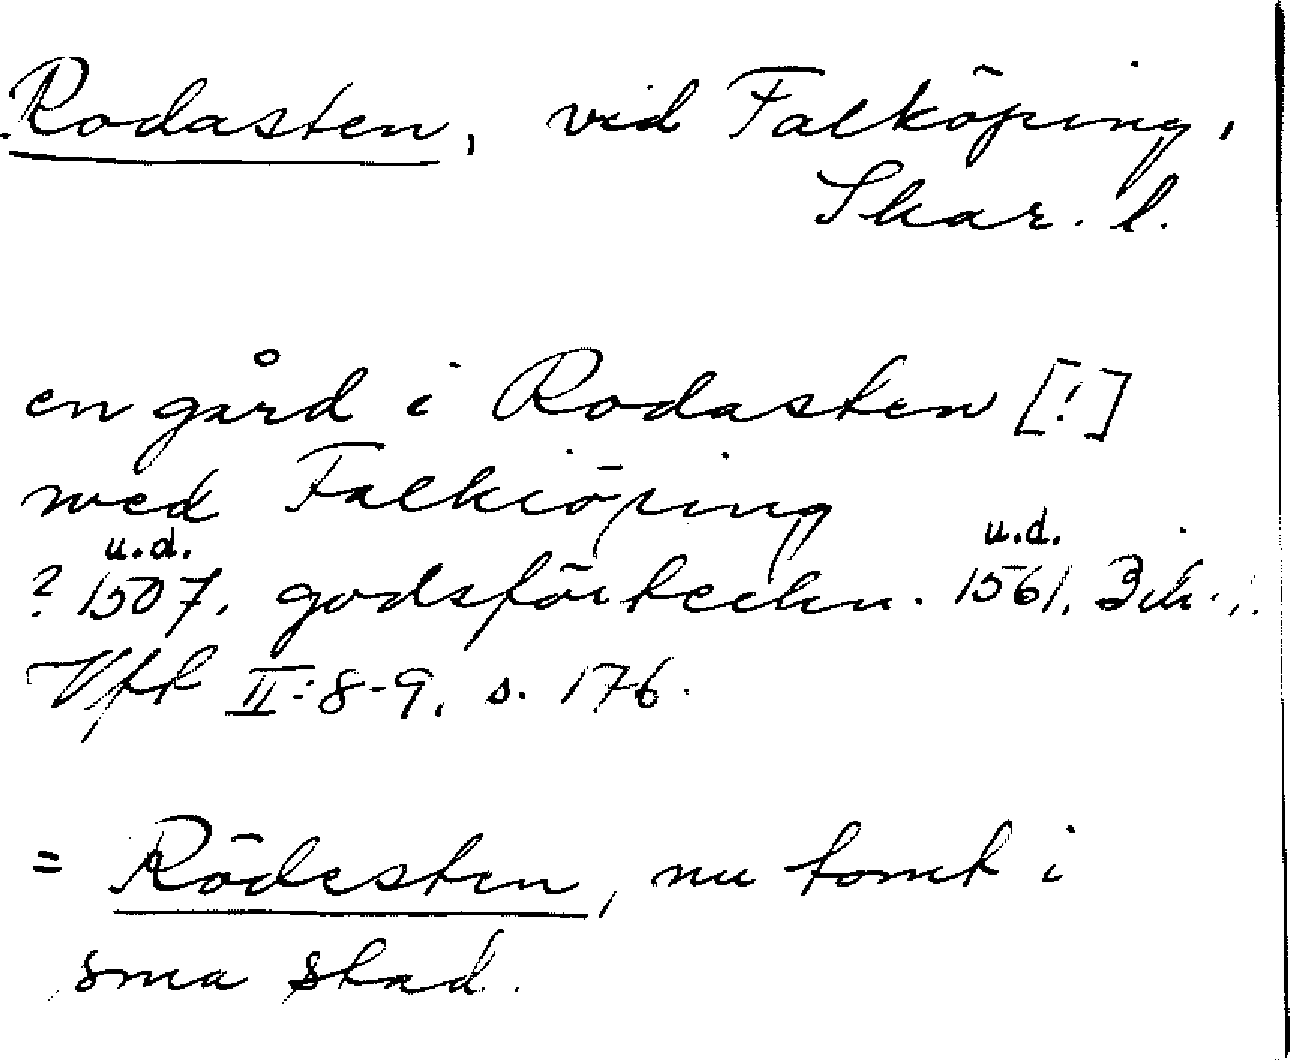 Rodasten, vid Falköping,
Skar. l.
en gård i Rodasten [!]
med Falkiöping
u.d. u.d.
? 1507, godsförteckn. 1561, Bih. i
Vft II:8-9, s. 176.
= Rödesten, nu tomt i
sma stad.